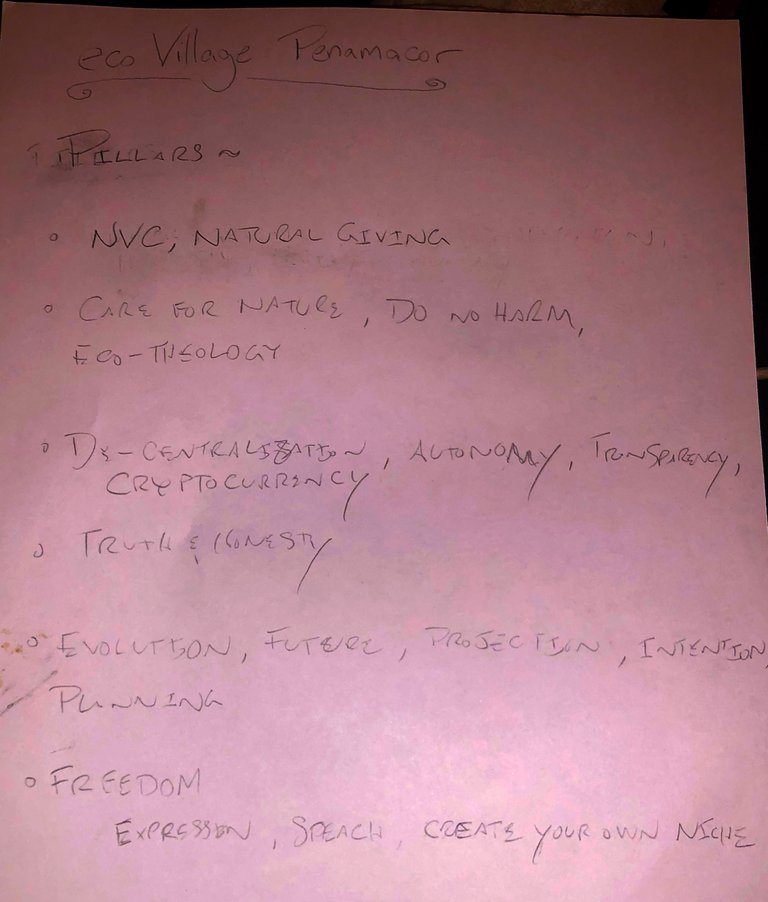 eco Village Penamacor
PILLARS ~
NVC, NATURAL GIVING
CARE FOR NATURE, DO NO HARM,
ECO-THEOLOGY
DE-CENTRALIZATION, AUTONOMY, TRANSPARENCY,
CRYPTOCURRENCY
TRUTH & HONESTY
EVOLUTION, FUTURE, PROJECTION, INTENTION,
PLANNING
FREEDOM
EXPRESSION, SPEACH, CREATE YOUR OWN NICHE